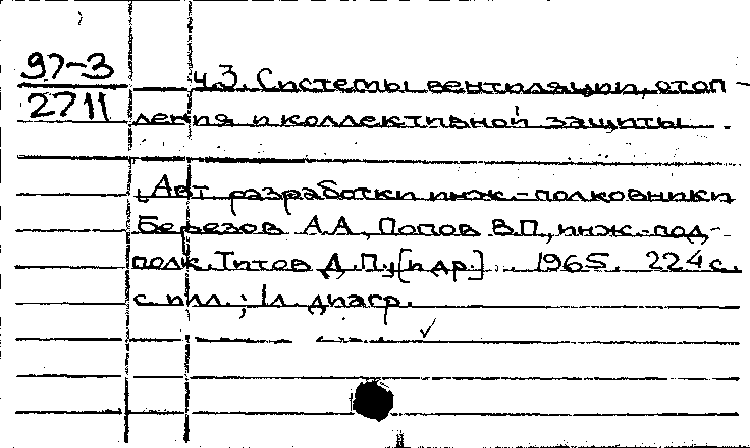 97-3
2711
ч.3. Системы вентиляции, отоп-
ления и коллективной защиты.
[Авт разработки инж.-полковники
Березов А.А., Попов В.П., инж.-под-
полк. Титов Д.П., [и др.]. 1965. 224 с.
с илл.; 1л. диагр.